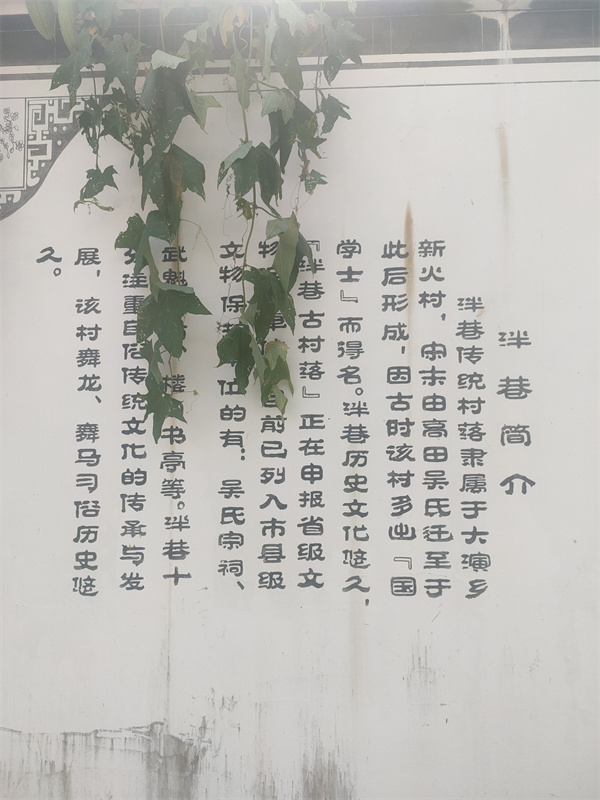 泮巷简介
泮巷传统村落隶属于大演乡
新火村，宋末由高田吴氏迁至于
此后形成，因古时该村多出『国
学士』而得名。泮巷历史文化悠久，
『泮巷古村落』正在申报省级文
物 前已列入市县级
文物保 位的有：吴氏宗祠、
武魁 楼 书亭等。泮巷十
分注重民俗传统文化的传承与发
展，该村舞龙、舞马习俗历史悠
久。